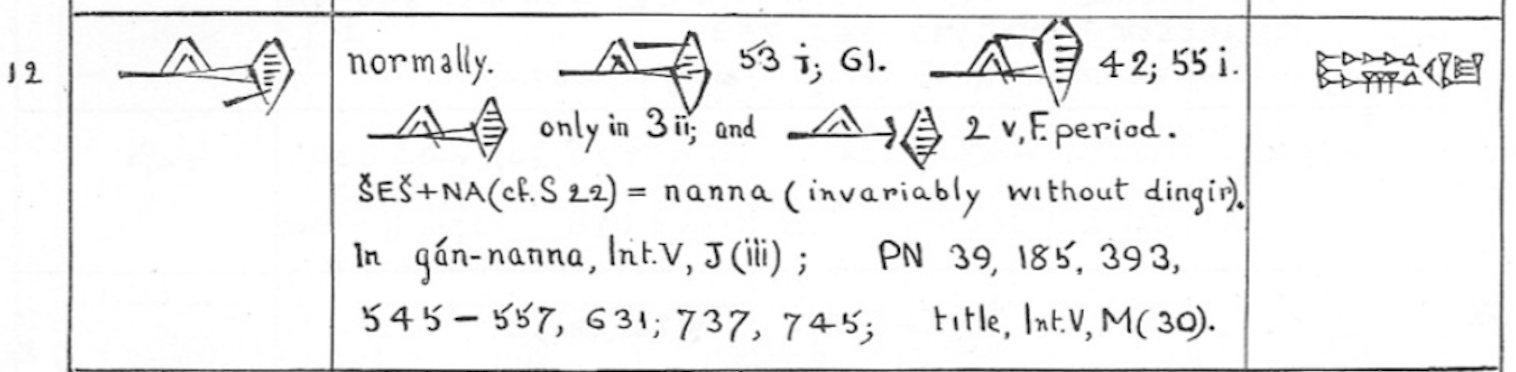 12 normally. 53 i; 61. 42; 55 i.
only in 3 ii; and 2 v, F. period.
ŠEŠ+NA (cf. S 22) = nanna (invariably without dingir).
In gán-nanna, Int. V, J (iii); PN 39, 185, 393,
545 – 557, 631; 737, 745; title, Int. V, M (30).